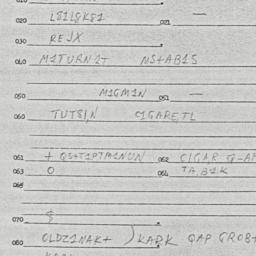 020 L818K81 021 —
030 REJX
040 M1TURN1T NS+AB1S
050 M1GM1N 051 —
060 TUT81N C1GARETL
061 062 CIGAR
063 O 064 TA,B1K
070 $
080 OLDZ1NAK+ ) KAPK QAP GROB